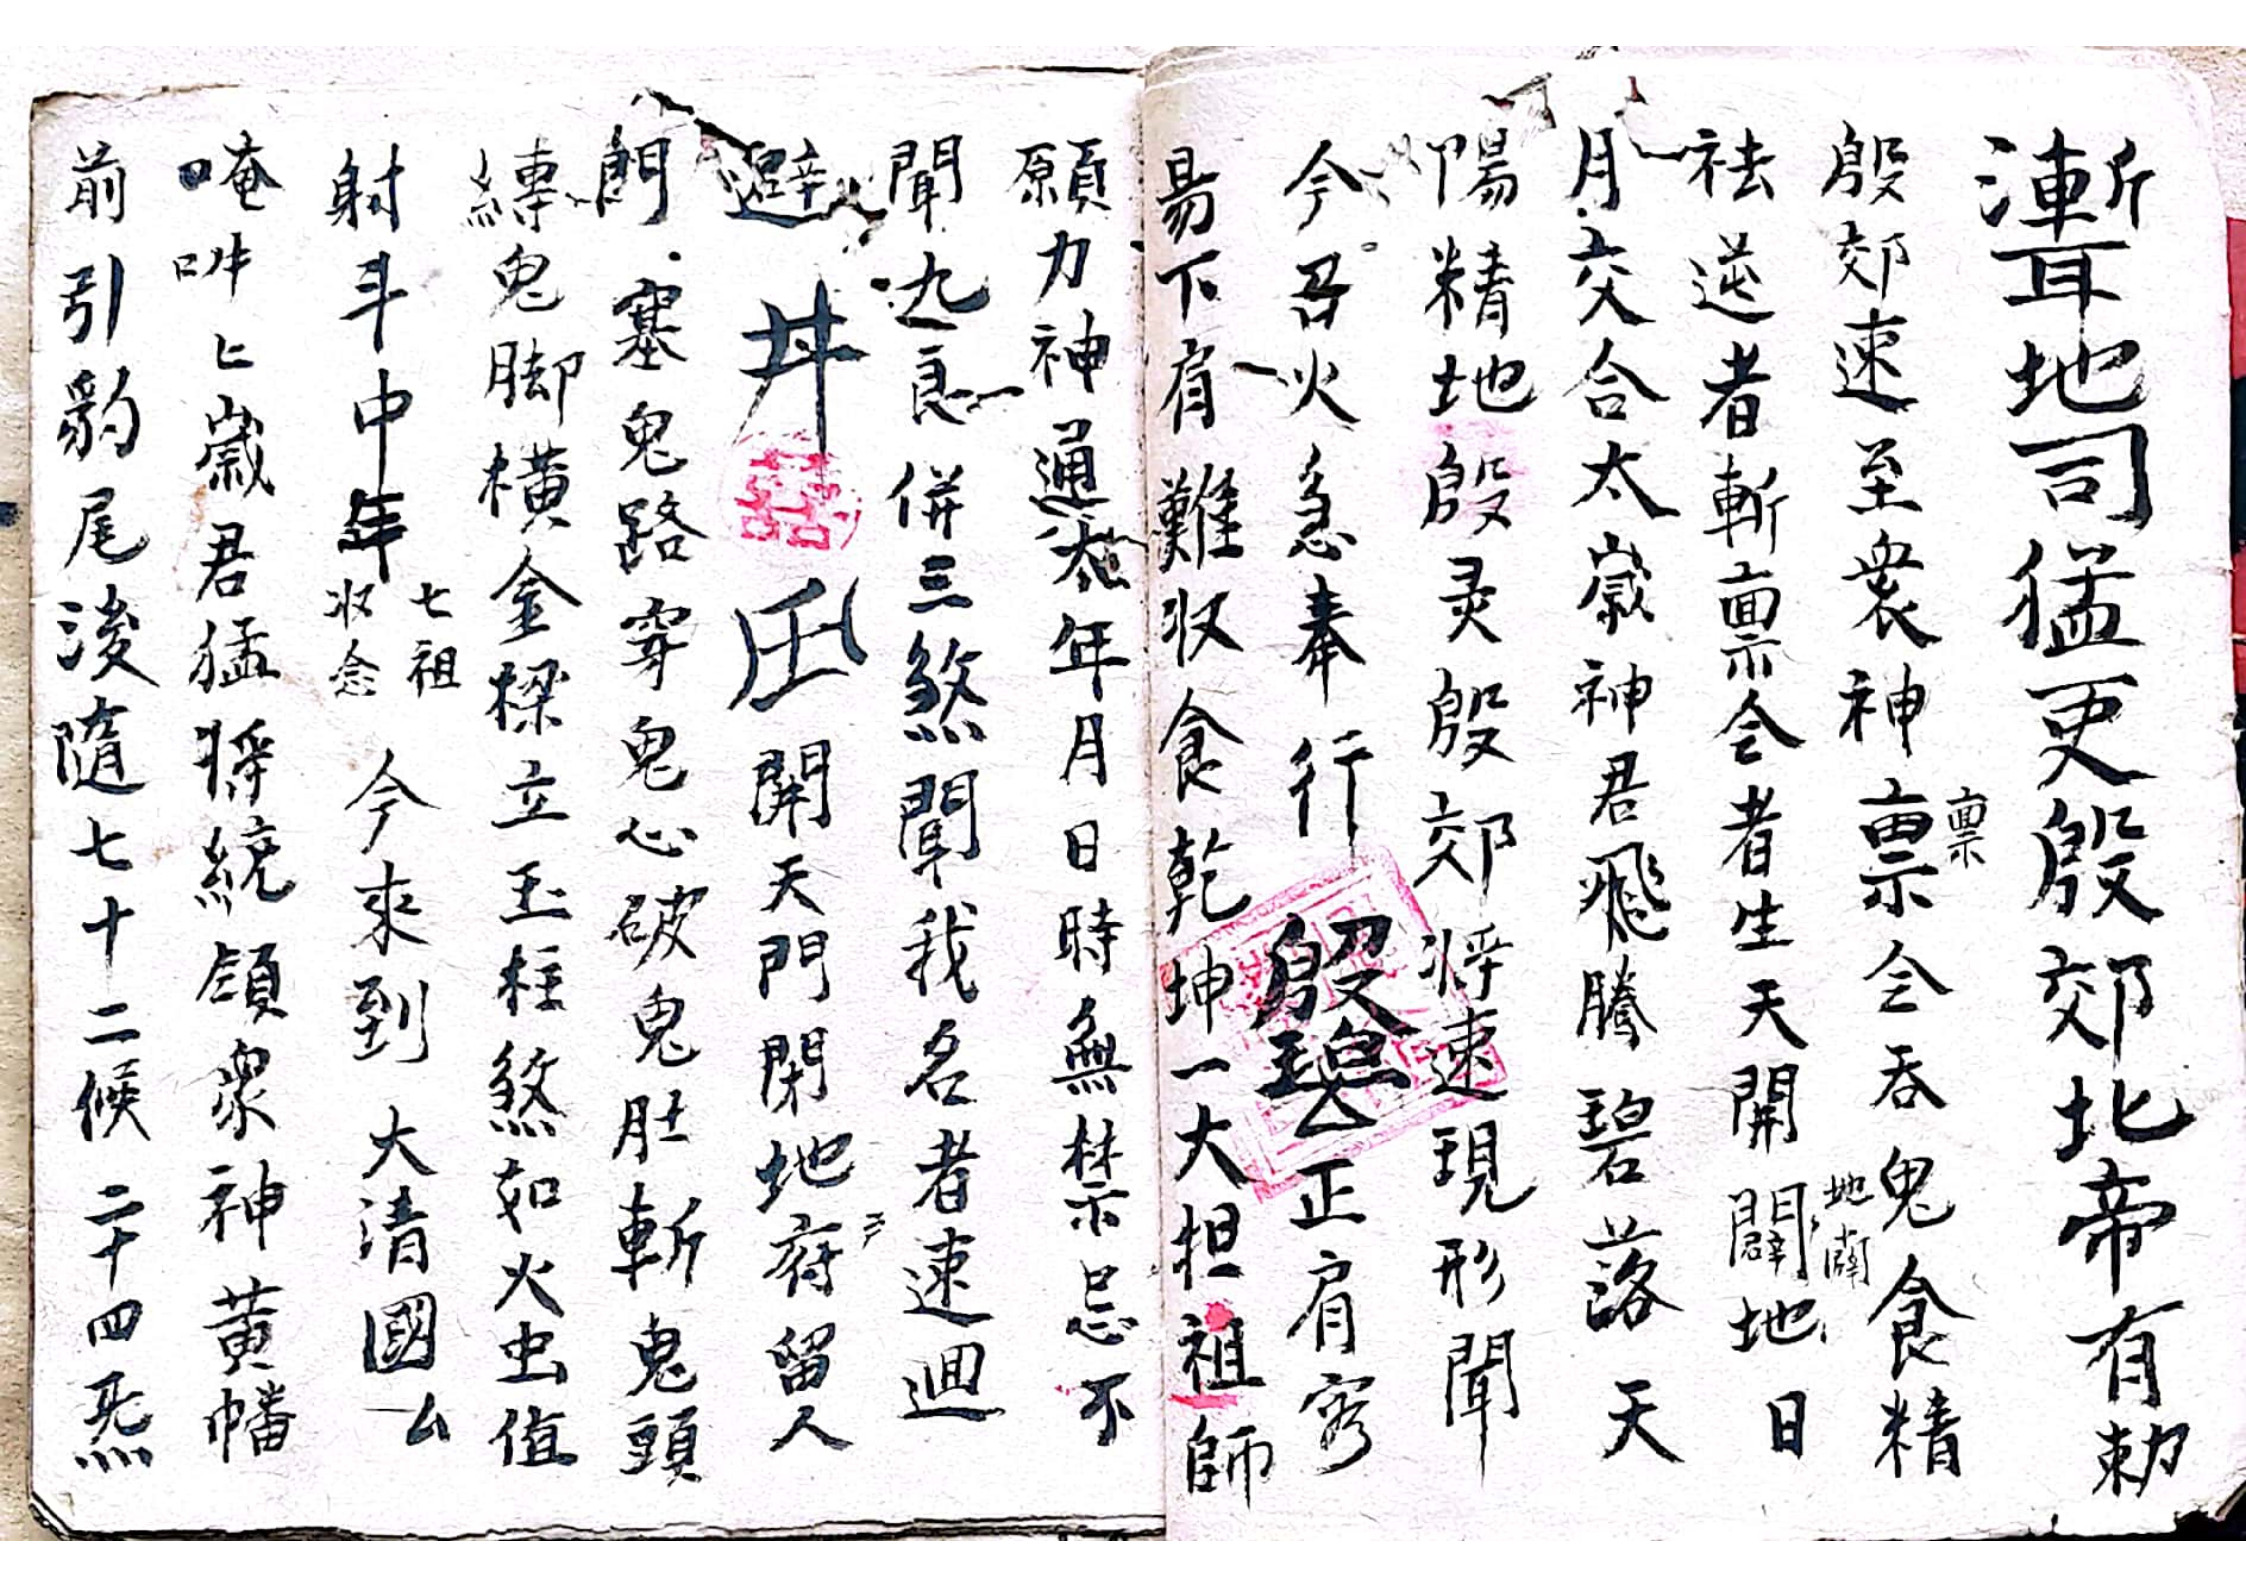 地司猛吏殷郊北帝有勅
殷郊速至衆神禀令吞鬼食精
禀
祛逆者斬禀令者生天開闢地日
地闢
月交合太歲神君飛騰碧落天
陽精地殷灵殷郊将速現形聞
今召火急奉行 正肩容
易下肩難収食乾坤一大担祖師
願力神通太年月日時無禁忌不
聞九良併三煞聞我名者速迴
避 開天門閉地府留人
門塞鬼路穿鬼心破鬼肚斬鬼頭
縛鬼脚橫金樑立玉柱煞如火虫值
射斗中年 七祖
収念 今來到 大清國厶
唵吽匕歲君猛将統領衆神黃幡
前引豹尾後隨七十二候二十四炁